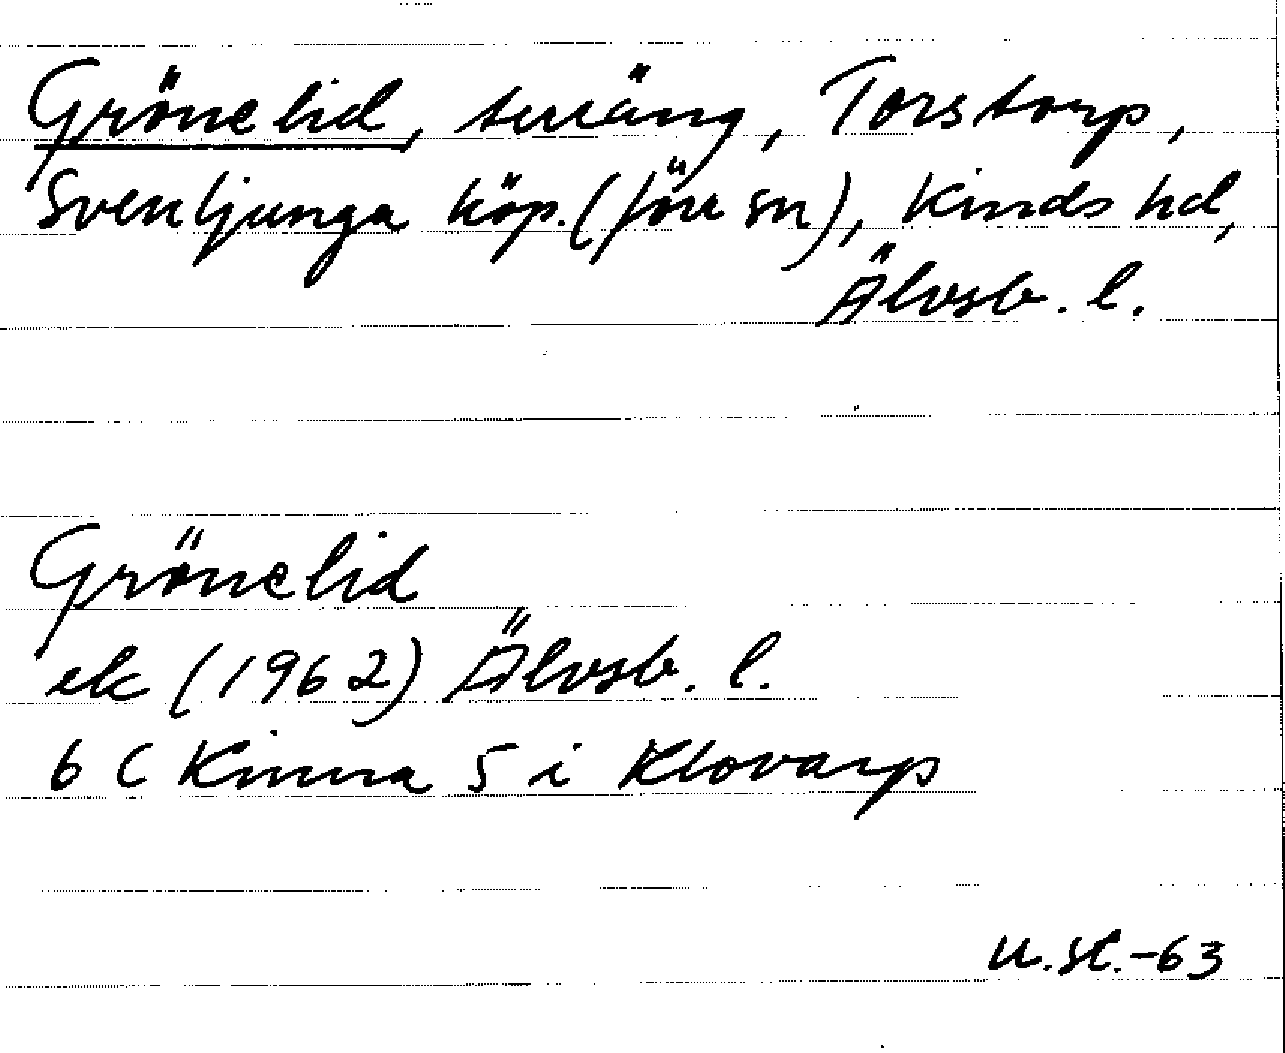 Grönelid, terräng, Torstorp,
Svenljunga köp. (förr sn), Kinds hd,
Älvsb. l.
Grönelid
ek (1962) Älvsb. l.
6 C Kinna 5 i Klovarp
u.st.-63